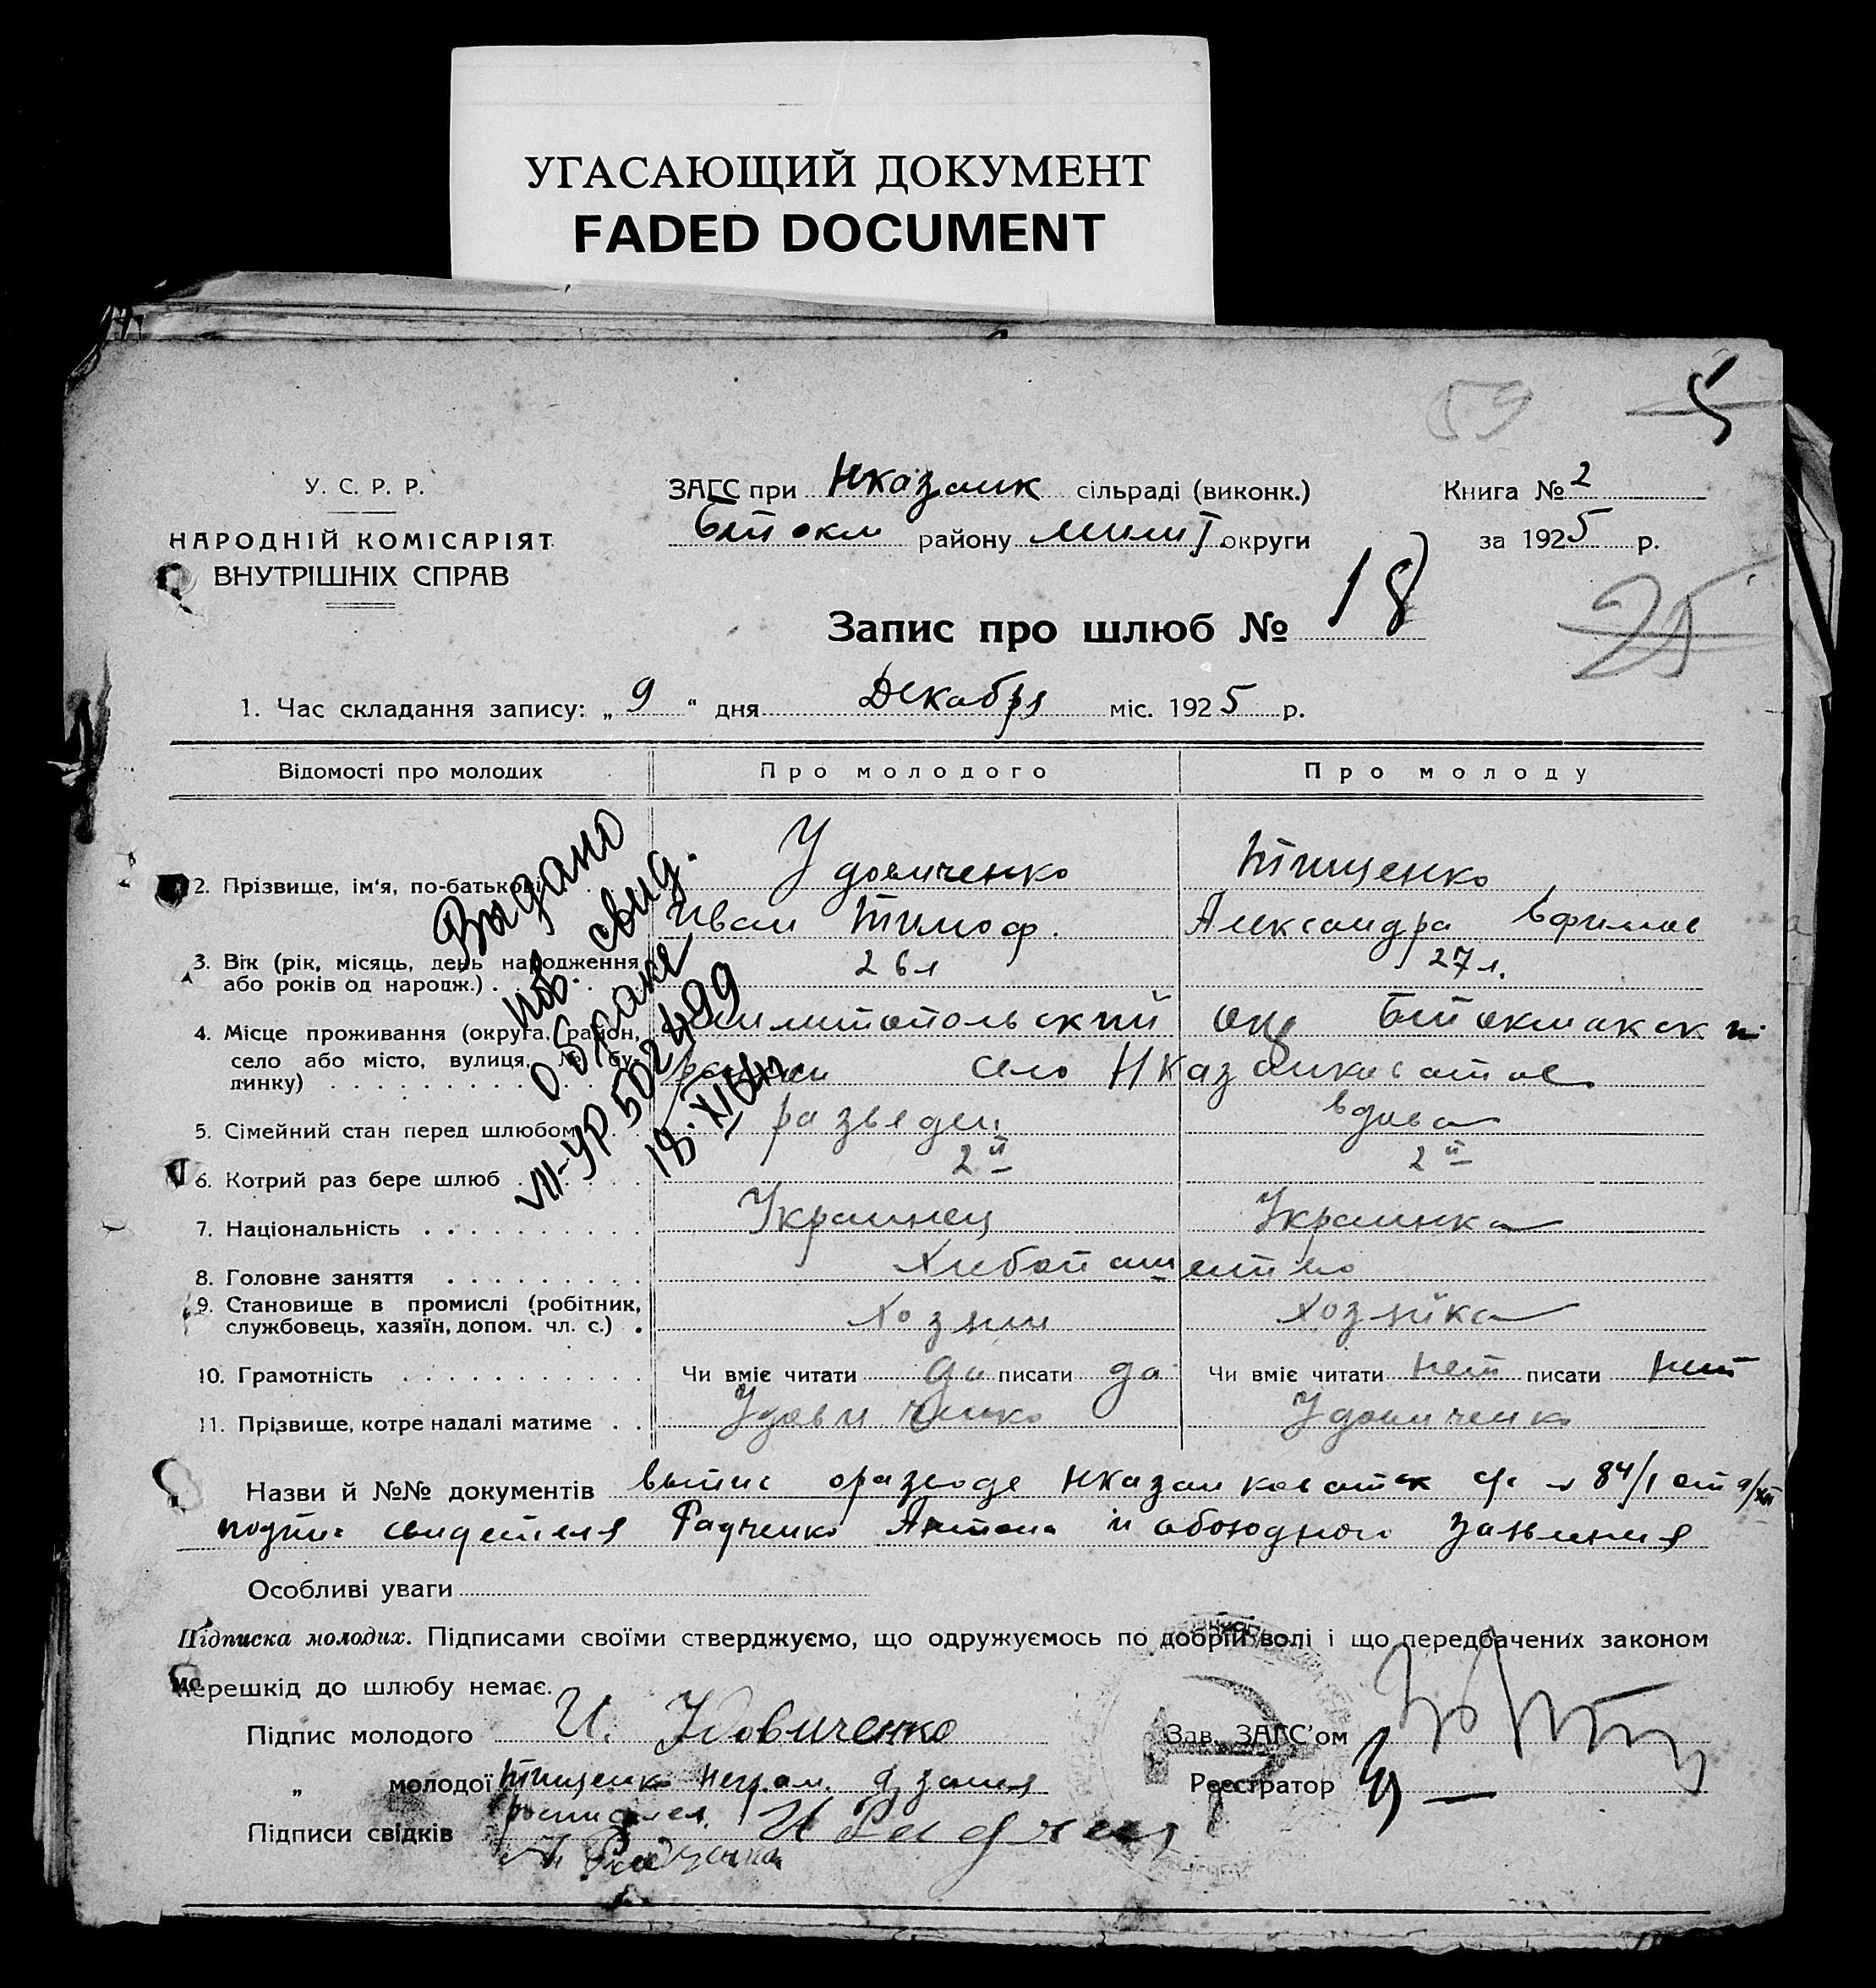 УГАСАЮЩИЙ ДОКУМЕНТ
FADED DOCUMENT
59 5
У. С. Р. Р.
НАРОДНІЙ КОМІСАРІЯТ
ВНУТРІШНІХ СПРАВ
ЗАГС при Нказанк сільраді (виконк.)
Бтокм району Мелит округи
Книга № 2
за 1925 р.
25
Запис про шлюб № 18
1. Час складання запису: „ 9 “ дня Декабря міс. 1925 р.
Відомості про молодих Про молодого Про молоду
2. Прізвище, ім'я, по-батькові Удовиченко Тищенко
Иван Тимоф. Александра Ефимов
3. Вік (рік, місяць, день народження або років од народж.) . 26 л 27 л.
4. Місце проживання (округа, район, Мелитопольский окр Бтокмакск
село або місто, вулиця, № бу- район село Нказанковатое
динку)
5. Сімейний стан перед шлюбом разведен вдова
6. Котрий раз бере шлюб 2й 2й
7. Національність Украинец Украинка
8. Головне заняття Хлебопашество
9. Становище в промислі (робітник, службовець, хазяїн, допом. чл. с.) . Хозяин Хозяйка
10. Грамотність Чи вміє читати да писати да Чи вміє читати нет писати нет
11. Прізвище, котре надалі матиме . . Удовиченко Удовиченко
Выдано
пов. свид.
о браке
VII-УР 502499
18.XI
Назви й №№ документів выпис о разводе Нказанковатск с/с № 84/1 от 9/XII
подпис свидетеля Радченко Антона и обоюдной заявления
Особливі уваги
Підписка молодих. Підписами своїми стверджуємо, що одружуємось по добрій волі і що передбачених законом
перешкід до шлюбу немає.
Підпис молодого И. Удовиченко Зав. ЗАГС'ом
„ молодої Тищенко неграм. Реєстратор
росписался
Підписи свідків И Радчен
А Радченко